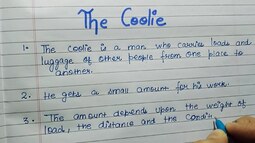 The Coolie
1. The coolie is a man who carries loads and
luggage of other people from one place to
another.
2. He gets a small amount for his work.
3. The amount depends upon the weight of
load, the distance and the